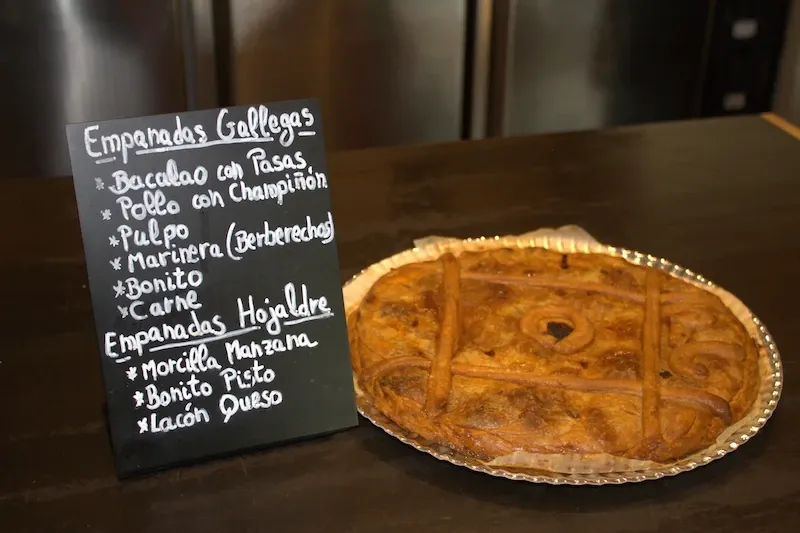 Empanadas Gallegas
* Bacalao con Pasas
* Pollo con Champiñón
* Pulpo
* Marinera (Berberechos)
* Bonito
* Carne
Empanadas Hojaldre
* Morcilla Manzana
* Bonito Pisto
* Lacón Queso